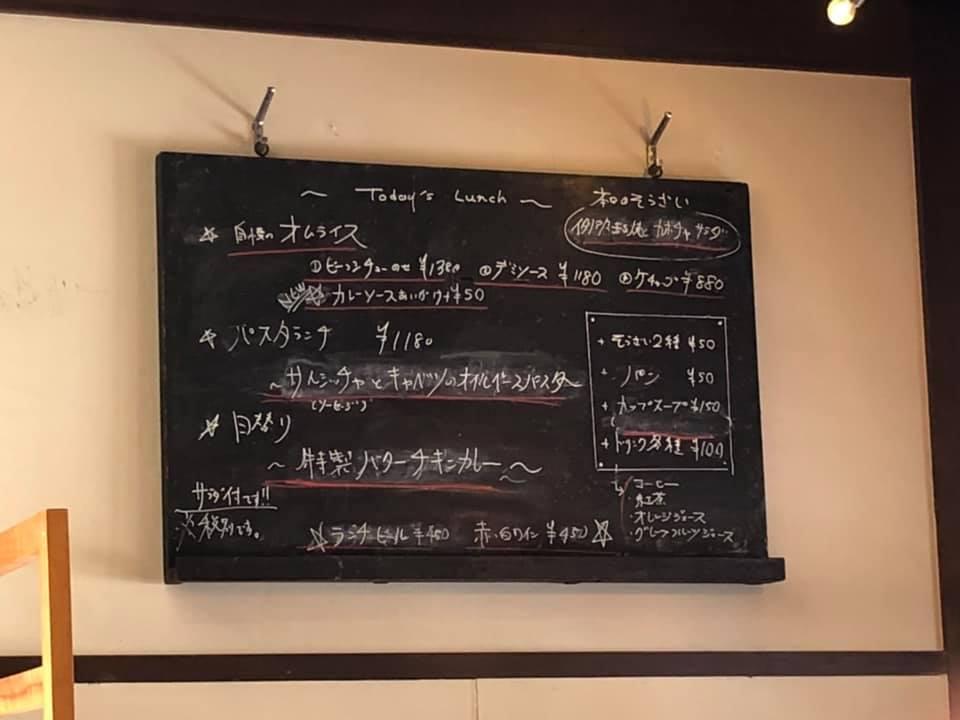 ～ Today's Lunch ～
本日のそうざい
カボチャサラダ
☆ 自慢の オムライス
① ビーフシチューのせ ¥1380 ② デミソース ¥1180 ③ ケチャップ ¥880
カレーソースあいがけ+¥50
☆ パスタランチ ¥1180
～サルシッチャとキャベツのオイルベースパスタ～
(ソーセージ)
☆ 日替り
～ 特製バターチキンカレー ～
サラダ付です!!
※税別です。
☆ランチビール ¥450 赤・白ワイン ¥450☆
+ そうざい2種 ¥50
+ パン ¥50
+ カップスープ ¥150
+ ドリンク各種 ¥100
↳ ・コーヒー
・紅茶
・オレンジジュース
・グレープフルーツジュース